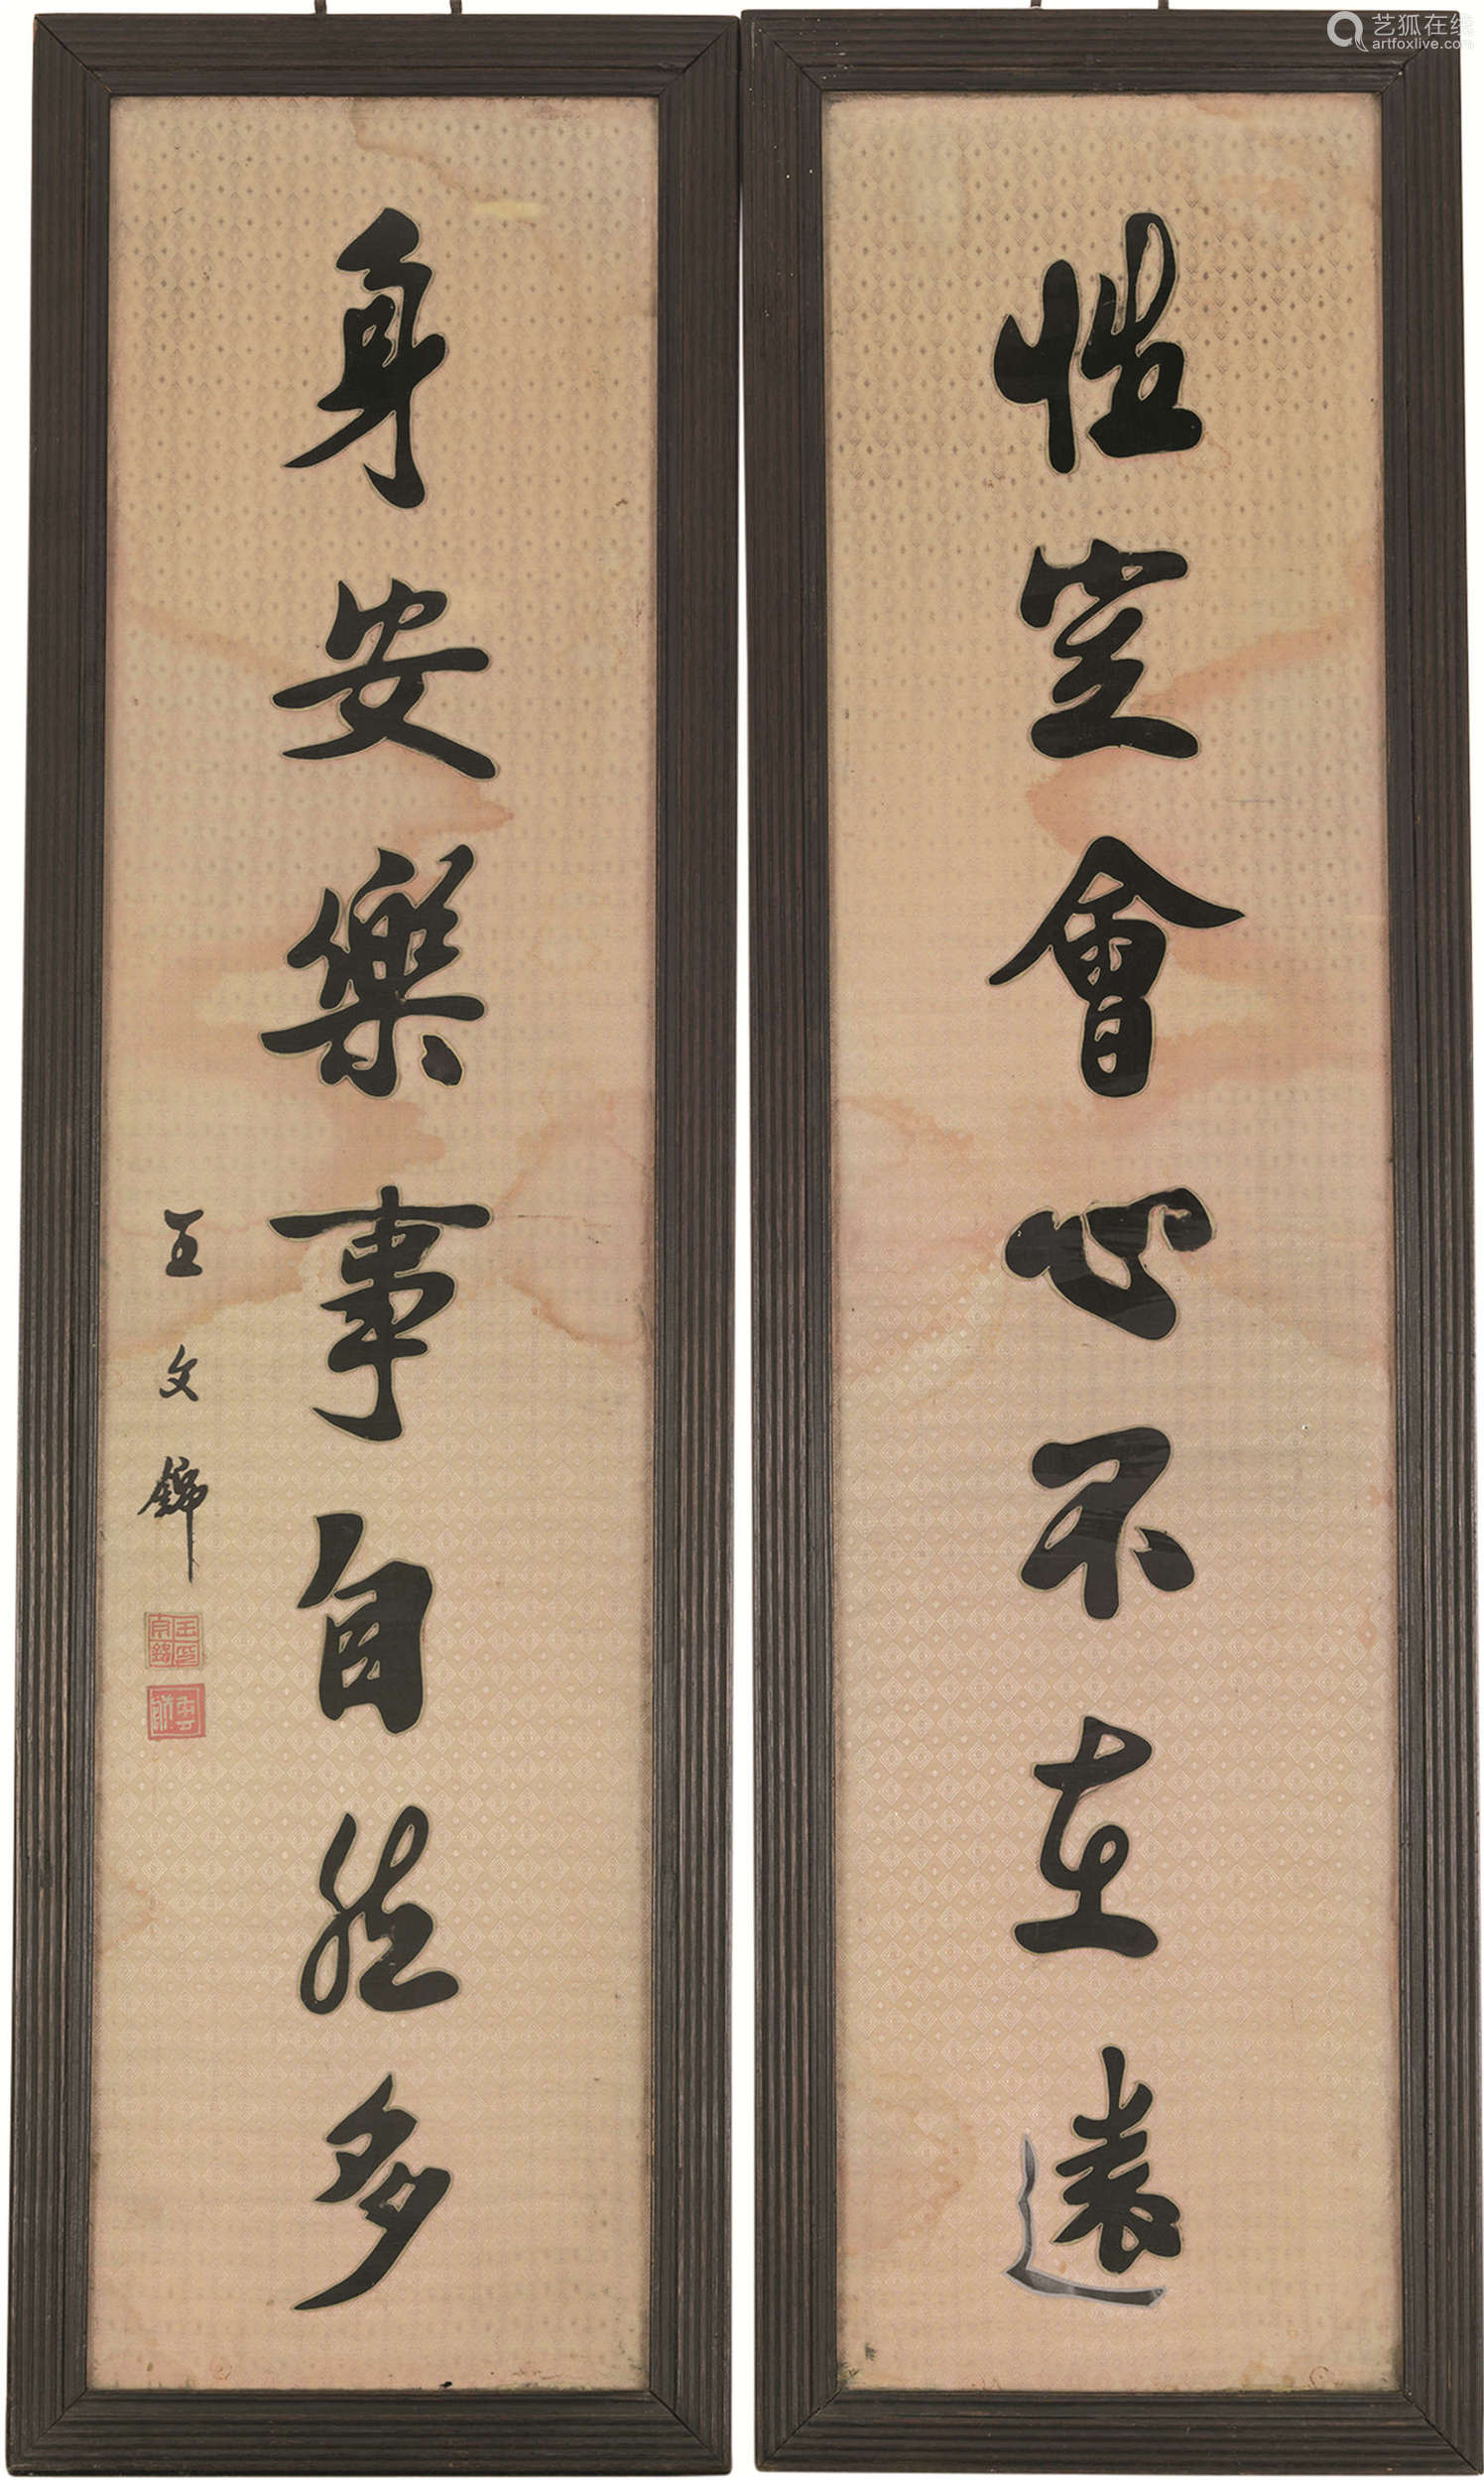 性定會心不在遠
身安樂事自然多
王文錦
艺狐在线
artfoxlive.com